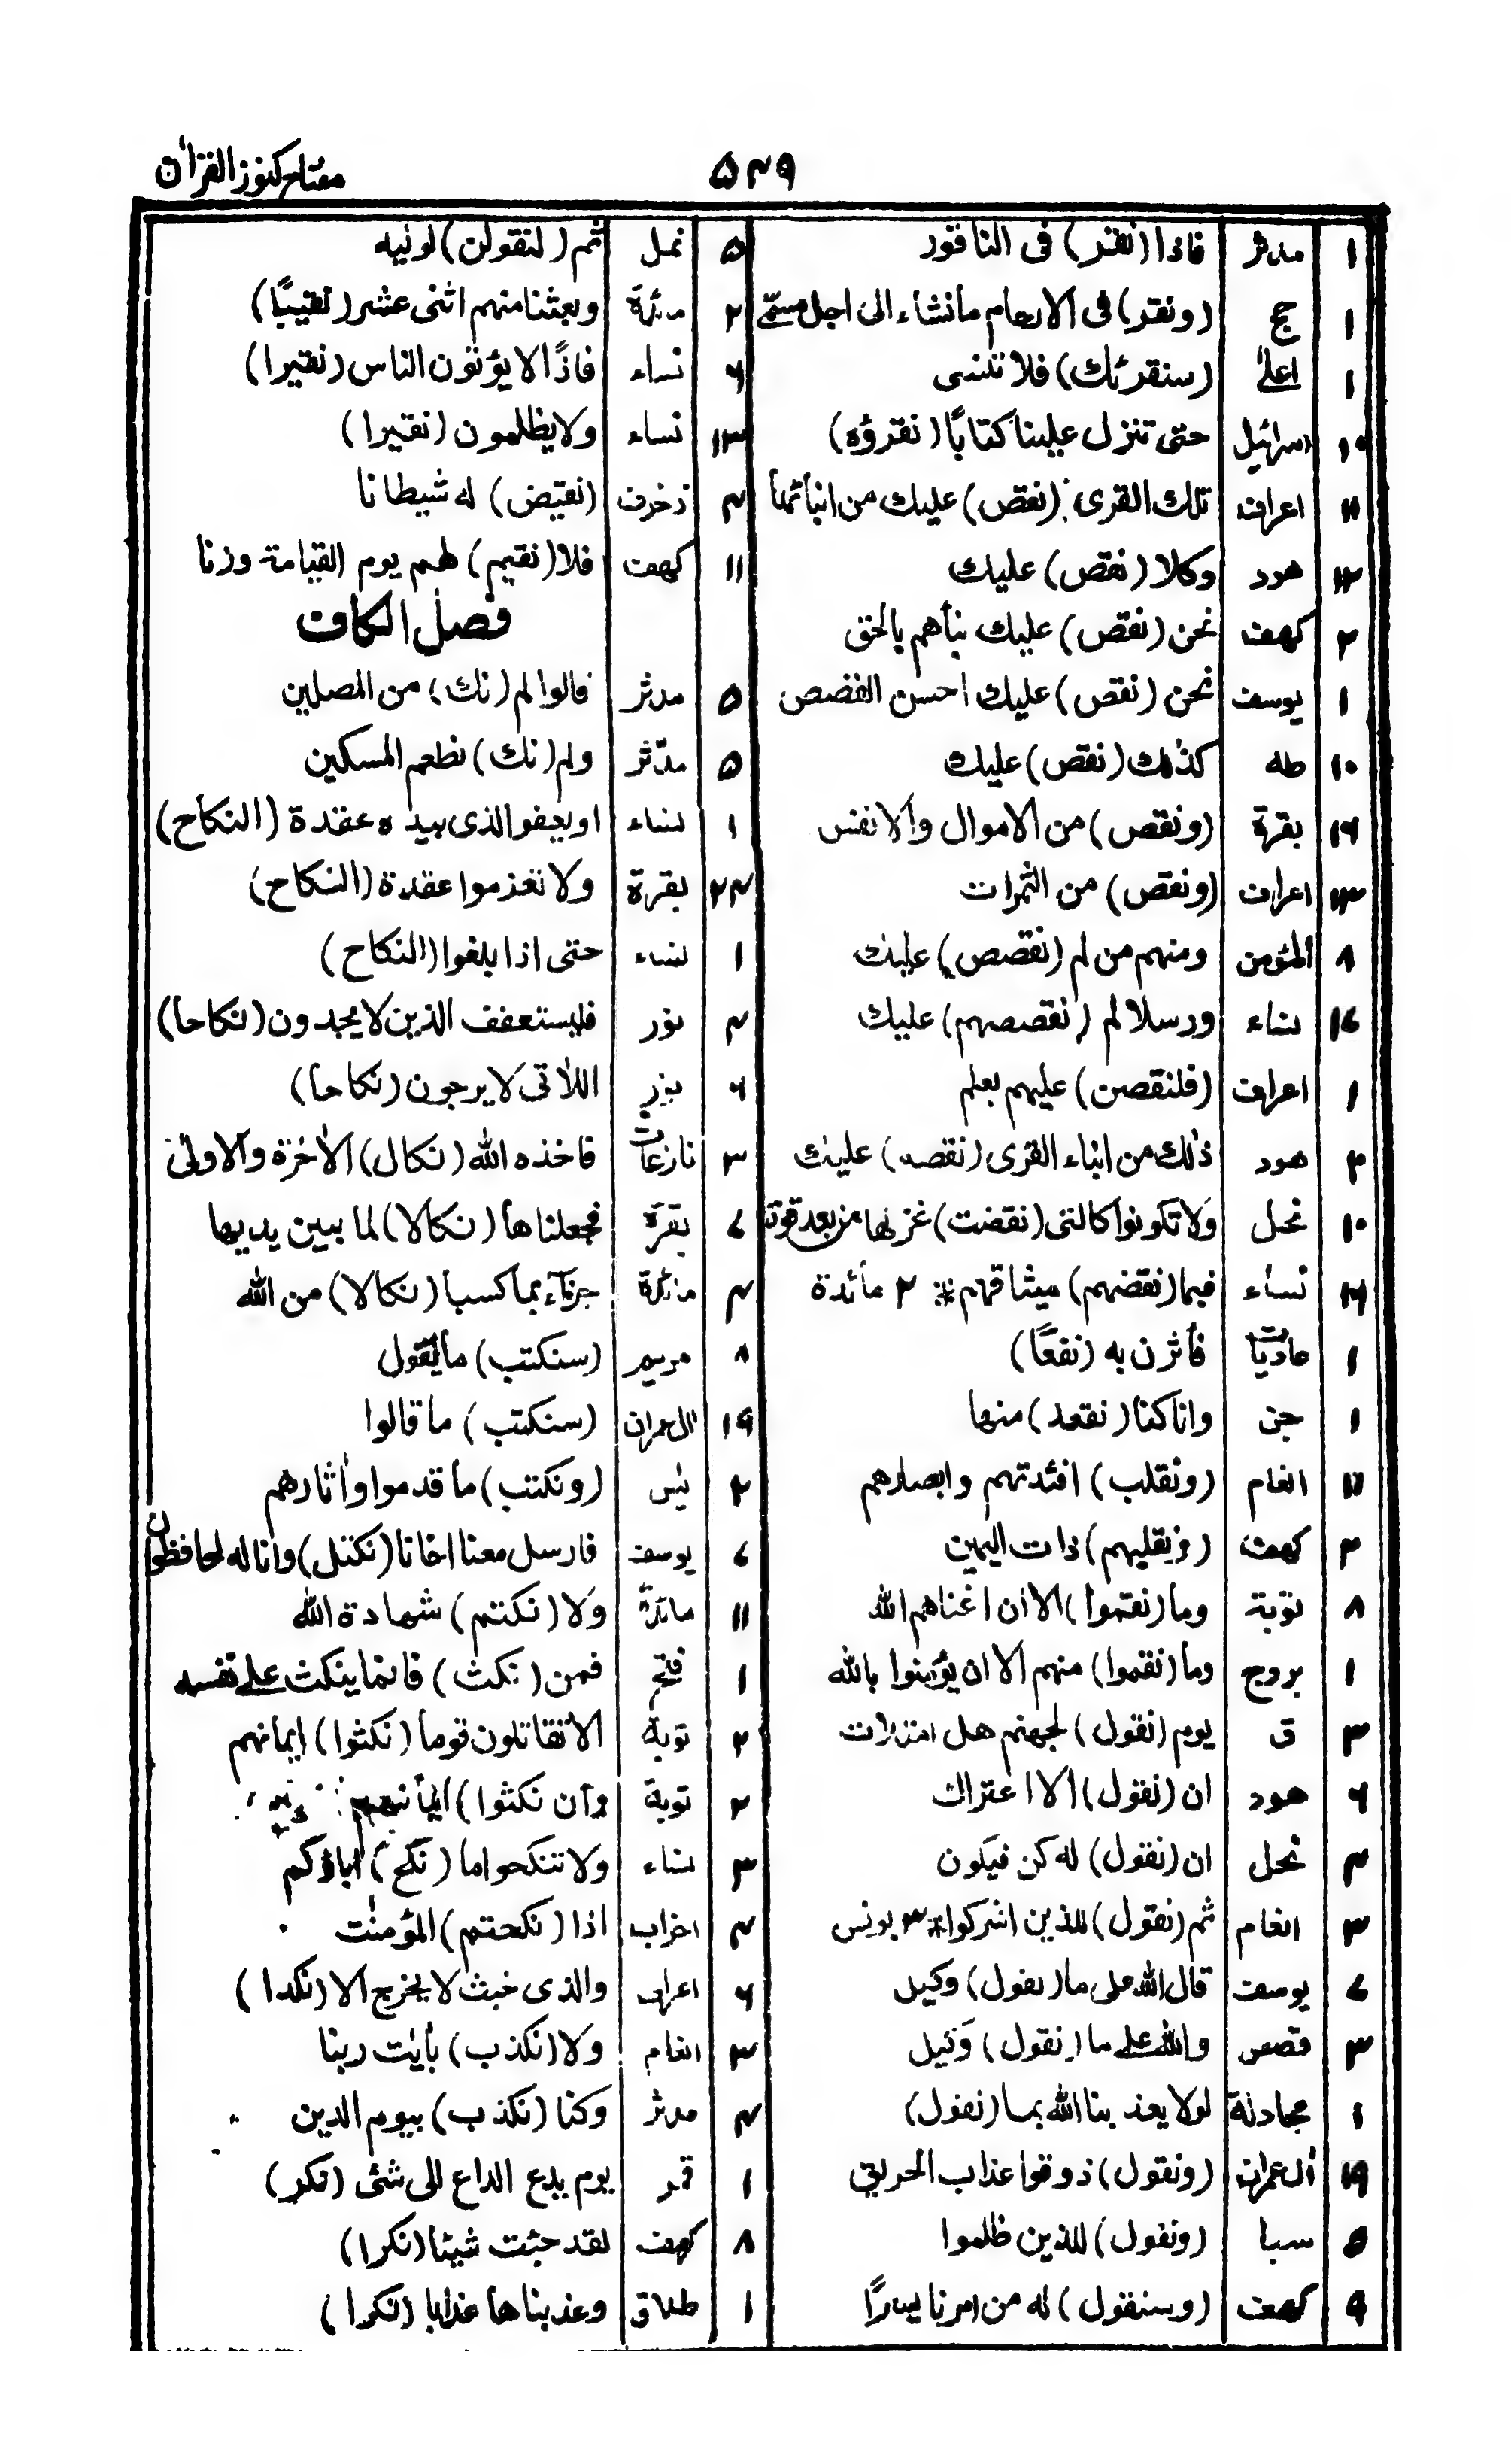 مفتاح کنوز القرآن
۵۴۹
۱ مدثر فاذا (نقر) فی الناقور
۱ حج (ونقر) فی الارحام ما نشاء الی اجل مسمّے
۱ اعلےٰ (سنقرئك) فلا تنسی
۱۰ اسرائیل حتی تنزل علینا کتابًا (نقرؤه)
۱۱ اعراف تلك القری (نقص) علیك من انبائها
هود وکلا (نقص) علیك
۲ کهف نحن (نقص) علیك نبأهم بالحق
۱ یوسف نحن (نقص) علیك احسن القصص
۱۰ طه کذٰلك (نقص) علیك
۱۶ بقرة (ونقص) من الاموال والانفس
۱۳ اعراف (ونقص) من الثمرات
۸ المؤمن ومنهم من لم (نقصص) علیك
نساء ورسلا لم (نقصصهم) علیك
۱ اعراف (فلنقصن) علیهم بعلم
هود ذٰلك من انباء القری (نقصه) علیك
۱۰ نحل ولا تکونوا کالتی (نقضت) غزلها من بعد قوة
نساء فبما (نقضهم) میثاقهم * ۲ مائدة
۱ عادیات فأثرن به (نقعًا)
۱ جن وانا کنا (نقعد) منها
انعام (ونقلب) افئدتهم وابصارهم
کهف (ونقلبهم) ذات الیمین
۸ توبة وما (نقموا) الا ان اغناهم الله
۱ بروج وما (نقموا) منهم الا ان یؤمنوا بالله
۳ ق یوم (نقول) لجهنم هل امتلات
هود ان (نقول) الا اعتراك
نحل ان (نقول) له کن فیکون
۳ انعام ثم (نقول) للذین اشرکوا * ۳ یونس
یوسف قال الله علی ما (نقول) وکیل
۳ قصص والله علے ما (نقول) وکیل
۱ مجادلة لولا یعذبنا الله بما (نقول)
۱۹ آل عمران (ونقول) ذوقوا عذاب الحریق
۵ سبا (ونقول) للذین ظلموا
کهف (وسنقول) له من امرنا یسرًا
۵ نمل ثم (لنقولن) لولیه
مائدة وبعثنا منهم اثنی عشر (نقیبًا)
نساء فاذًا لا یؤتون الناس (نقیرا)
نساء ولا یظلمون (نقیرا)
۴ زخرف (نقیض) له شیطانا
۱۱ کهف فلا (نقیم) لهم یوم القیامة وزنا
فصل الکاف
۵ مدثر قالوا لم (نك) من المصلین
۵ مدّثر ولم (نك) نطعم المسکین
۱ نساء او یعفو الذی بیده عقدة (النکاح)
بقرة ولا تعزموا عقدة (النکاح)
۱ نساء حتی اذا بلغوا (النکاح)
۴ نور فلیستعفف الذین لا یجدون (نکاحا)
نور اللاتی لا یرجون (نکاحا)
نازعات فاخذه الله (نکال) الاٰخرة والاولیٰ
بقرة فجعلناها (نکالا) لما بین یدیها
مائدة جزآء بما کسبا (نکالا) من الله
۸ مریم (سنکتب) ما یقول
۱۹ ال عمران (سنکتب) ما قالوا
یٰس (ونکتب) ما قدموا واٰثارهم
یوسف فارسل معنا اخانا (نکتل) وانا له لحافظون
۱۱ مائدة ولا (نکتم) شهادة الله
۱ فتح فمن (نکث) فانما ینکث علے نفسه
۲ توبة الا تقاتلون قوما (نکثوا) ایمانهم
۲ توبة وان نکثوا) ایمانهم
۳ نساء ولا تنکحوا ما (نکح) اباؤکم
احزاب اذا (نکحتم) المؤمنٰت
اعراف والذی خبث لا یخرج الا (نکدا)
۳ انعام ولا (نکذب) بأیٰت ربنا
مدثر وکنا (نکذب) بیوم الدین
۱ قمر یوم یدع الداع الی شئ (نکر)
۸ کهف لقد جئت شیئا (نکرا)
۱ طلاق وعذبناها عذابا (نکرا)